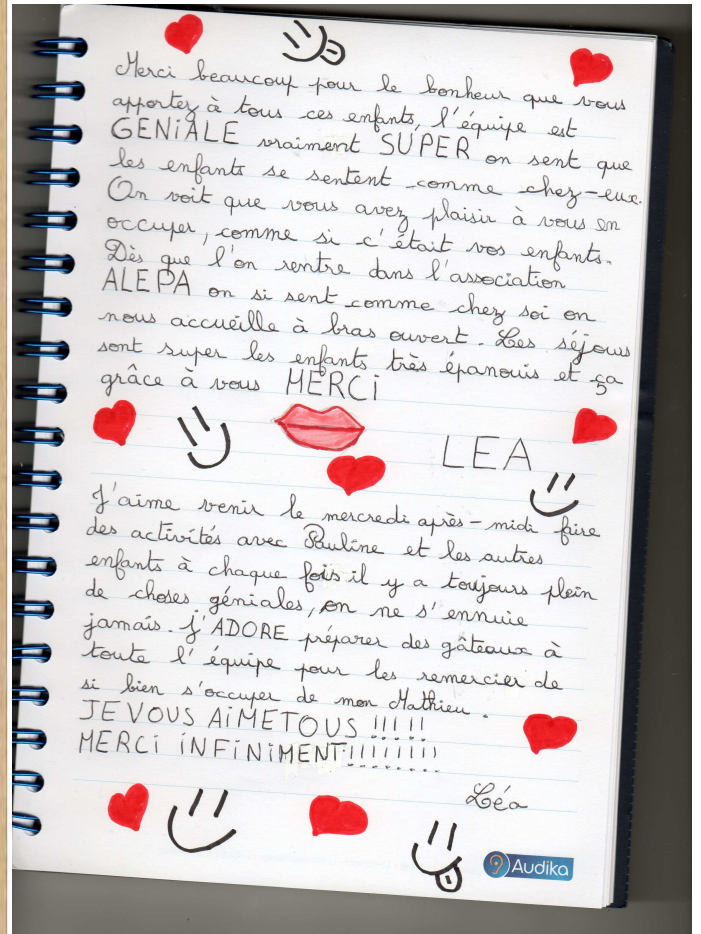 Merci beaucoup pour le bonheur que vous
apportez à tous ces enfants, l'équipe est
GENiALE vraiment SUPER on sent que
les enfants se sentent comme chez-eux.
On voit que vous avez plaisir à vous en
occuper, comme si c'était vos enfants.
Dès que l'on rentre dans l'association
ALEPA on si sent comme chez soi on
nous accueille à bras ouvert. Les séjours
sont super les enfants très épanouis et ça
grâce à vous MERCi
LEA
J'aime venir le mercredi après-midi faire
des activités avec Pauline et les autres
enfants à chaque fois il y a toujours plein
de choses géniales, on ne s'ennuie
jamais. J'ADORE préparer des gâteaux à
toute l'équipe pour les remercier de
si bien s'occuper de mon Mathieu.
JE VOUS AiME TOUS !!!!!
MERCi iNFiNiMENT!!!!!!!!!
Léa
Audika